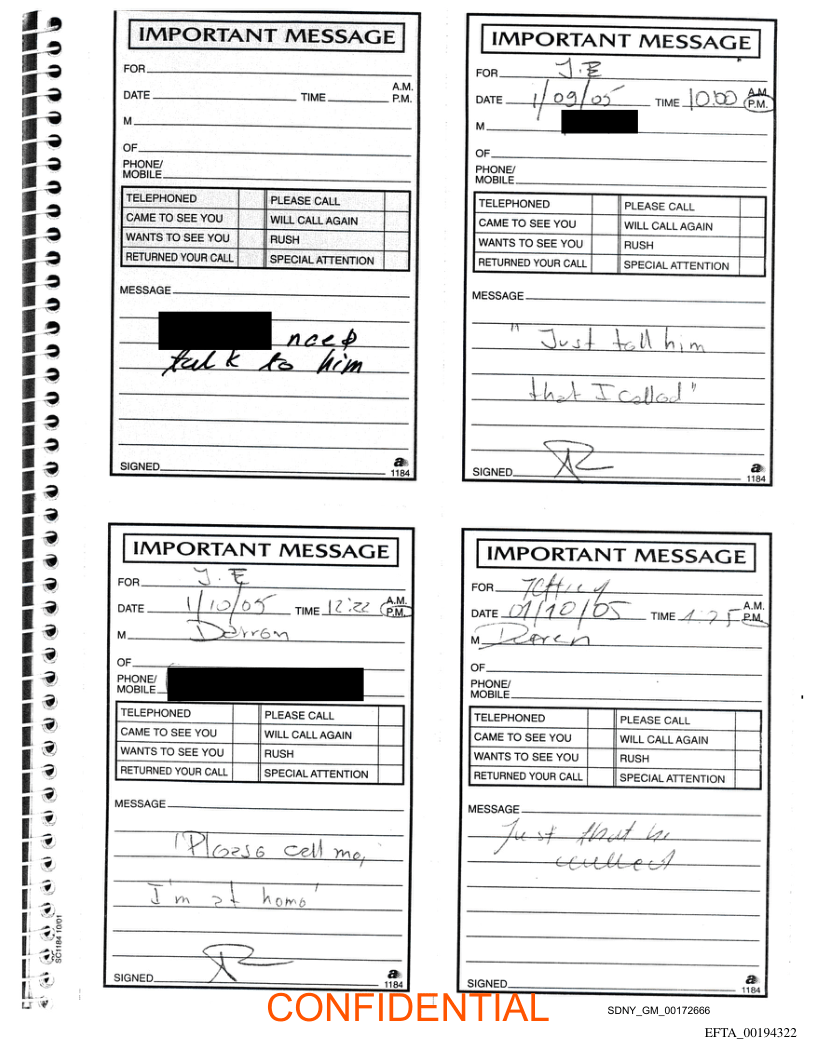 IMPORTANT MESSAGE
FOR
DATE TIME A.M. P.M.
M
OF
PHONE/
MOBILE
TELEPHONED PLEASE CALL
CAME TO SEE YOU WILL CALL AGAIN
WANTS TO SEE YOU RUSH
RETURNED YOUR CALL SPECIAL ATTENTION
MESSAGE
need
talk to him
SIGNED
1184
IMPORTANT MESSAGE
FOR J.E
DATE 1/09/05 TIME 10:00 A.M. P.M.
M
OF
PHONE/
MOBILE
TELEPHONED PLEASE CALL
CAME TO SEE YOU WILL CALL AGAIN
WANTS TO SEE YOU RUSH
RETURNED YOUR CALL SPECIAL ATTENTION
MESSAGE
"Just tell him
that I called"
SIGNED
1184
IMPORTANT MESSAGE
FOR J.E
DATE 1/10/05 TIME 12:22 A.M. P.M.
M Derron
OF
PHONE/
MOBILE
TELEPHONED PLEASE CALL
CAME TO SEE YOU WILL CALL AGAIN
WANTS TO SEE YOU RUSH
RETURNED YOUR CALL SPECIAL ATTENTION
MESSAGE
"Please call me,
I'm at home"
SIGNED
1184
IMPORTANT MESSAGE
FOR
DATE 01/10/05 TIME A.M. P.M.
M Daren
OF
PHONE/
MOBILE
TELEPHONED PLEASE CALL
CAME TO SEE YOU WILL CALL AGAIN
WANTS TO SEE YOU RUSH
RETURNED YOUR CALL SPECIAL ATTENTION
MESSAGE
Just that he
called
SIGNED
1184
SC1184 10/01
CONFIDENTIAL
SDNY_GM_00172666
EFTA_00194322